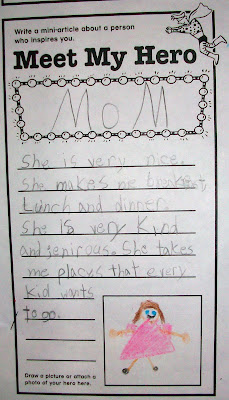 Write a mini-article about a person
who inspires you.
Meet My Hero
MoM
She is very nice.
She makes me breakfest,
Lunch and dinner.
She is very kind
and jenirous. She takes
me places that every
kid wants
to go.
Draw a picture or attach a
photo of your hero here.